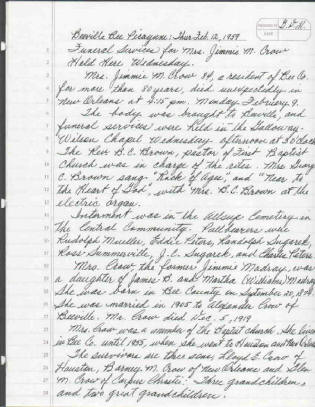 Beeville Bee Picayune: Thur. Feb. 12, 1959
Funeral Services for Mrs. Jimmie M. Crow
Held Here Wednesday.
Mrs. Jimmie M. Crow 84, a resident of Bee Co.
for more than 50 years, died unexpectedly in
New Orleans at 4:15 p.m. Monday February 9.
The body was brought to Beeville, and
funeral services were held in the Galloway-
Wilson Chapel Wednesday afternoon at 3 o'clock
The Rev. B.C. Brown, pastor of First Baptist
Church was in charge of the rites. Mrs. George
C. Brown sang "Rock of Ages", and "Near to
the Heart of God", with Mrs. B.C. Brown at the
electric organ.
Interment was in the Cemetery in
the Central Community. Pallbearers were
Rudolph Mueller, Eddie Peters, Randolph Sugarek,
Ross Summerville, J.C. Sugarek, and Charlie Peters
Mrs. Crow, the former Jimmie Madray, was
a daughter of James B. and Martha (Williams) Madray
She was born in Bee County on September 20, 1874.
She was married in 1905 to Alexander Crow of
Beeville. Mr. Crow died Dec. 5, 1919
Mrs. Crow was a member of the Baptist church. She lived
in Bee Co. until 1955, when she went to Houston and New Orleans
The survivors are three sons; Lloyd E. Crow of
Houston, Barney M. Crow of New Orleans and Glen
M. Crow of Corpus Christi. Three grandchildren,
and two great grandchildren.